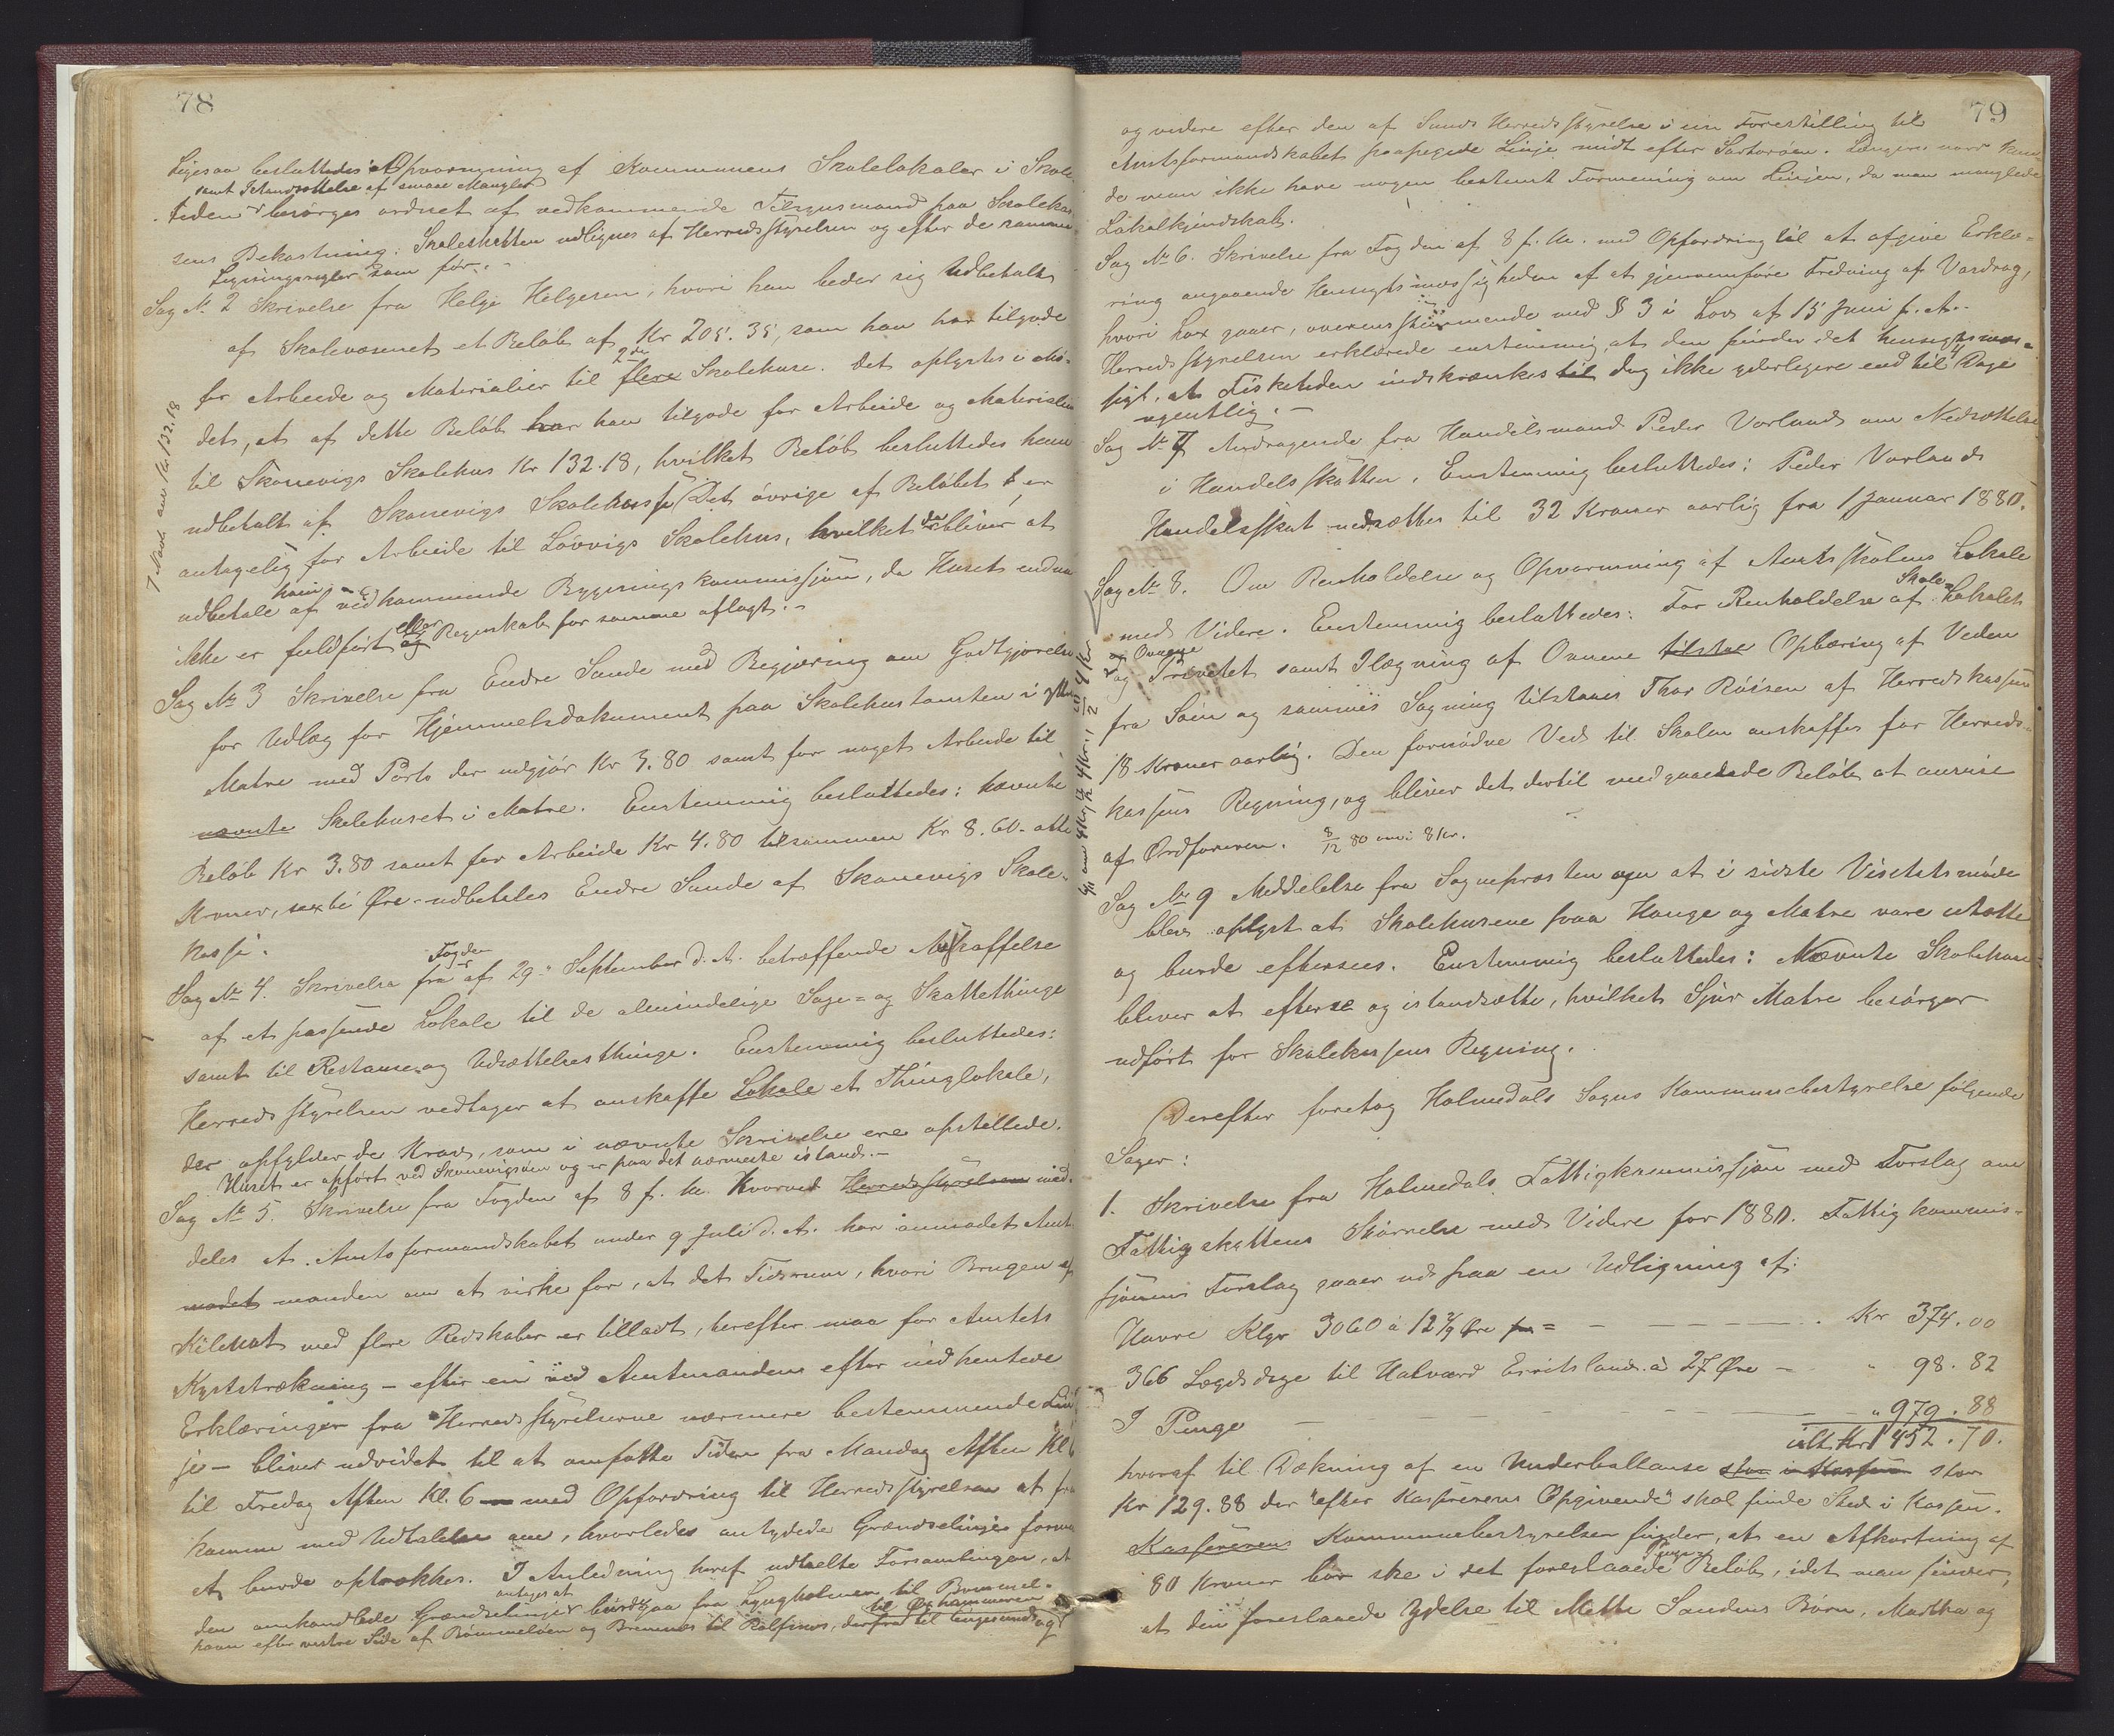 78
Ligesaa besluttedes at Opvarmning af Kommunens Skolelokaler i Skole-
samt Istandsættelse af smaa Mangler
tiden besørges ordnet af vedkommende Tilsynsmand paa Skolekas-
sens Bekostning. Skoleskatten udlignes af Herredsstyrelsen og efter de samme
Ligningsregler som før.-
Sag No 2 Skrivelse fra Helge Helgesen, hvori han beder sig udbetalt
af Skolevæsenet et Beløb af Kr 205.35, som han har tilgode
2de
for Arbeide og Materialier til flere Skolehuse. Det oplystes i Mø-
det, at af dette Beløb har han tilgode for Arbeide og Materialier
til Skonevigs Skolehus Kr 132.18, hvilket Beløb besluttedes ham
udbetalt af Skonevigs Skolekasse. Det øvrige af Beløbet er
antagelig for Arbeide til Løvvigs Skolehus, hvilket da bliver at
udbetale ham af vedkommende Bygningskommission, da Huset endnu
eller
ikke er fuldført og Regnskab for samme aflagt.-
7 Navb anv Kr 132.18
Sag No 3 Skrivelse fra Endre Sunde med Begjæring om Godtgjørelse
for Udlæg for Hjemmelsdokument paa Skolehustomten i ytre
Matre med Porto der udgjør Kr 3.80 samt for noget Arbeide til
nævnte Skolehuset i Matre. Enstemmig besluttedes: nævnte
Beløb Kr 3.80 samt for Arbeide Kr 4.80 tilsammen Kr 8.60 - otte
Kroner, sexti Øre - udbetales Endre Sunde af Skonevigs Skole-
kasse.
Fogden
Sag No 4. Skrivelse fra af 29. September d. A. betræffende Anskaffelse
af et passende Lokale til de almindelige Sage- og Skattethinge
samt til Restance og Udsættelsesthinge. Enstemmig besluttedes:
Herredsstyrelsen vedtager at anskaffe Lokale et Thinglokale,
der opfylder de Krav, som i nævnte Skrivelse ere opstillede.
Huset er opført ved Skonevigsøen og er paa det nærmeste istand.-
Sag No 5. Skrivelse fra Fogden af 8 f. M. hvorved Herredsstyrelsen med-
deles at Amtsformandskabet under 9 Juli d. A. har anmodet Amt-
modet manden om at virke for, at det Tidsrum, hvori Brugen af
Kilenot med flere Redskaber er tilladt, herefter maa for Amtets
Kyststrækning - efter en ved Amtmandens efter indhentede
Erklæringer fra Herredsstyrelserne nærmere bestemmende Lin-
je - bliver udvidet til at omfatte Tiden fra Mandag Aften Kl 6
til Fredag Aften Kl. 6 med Opfordring til Herredsstyrelsen at frem
komme med Udtalelse om, hvorledes antydede Grændselinje formentlig
at burde optrækkes. I Anledning heraf udtalte Forsamlingen, at
antages at
den omhandlede Grændselinje burde gaa fra Lyngholmen til Bommel-
til Øghammeren
havn efter vestre Side af Bømmeløen og Bremnes til Rolfsnes, derfra til Langesund og
79
og videre efter den af Sunds Herredsstyrelse i sin Forestilling til
Amtsformandskabet paapegede Linje midt efter Sartorøen. Længere nord kun-
de man ikke have nogen bestemt Formening om Linjen, da man manglede
Lokalkjendskab.
Sag No 6. Skrivelse fra Fogden af 8 f. M. med Opfordring til at afgive Erklæ-
ring angaaende Hensigtsmæssigheden af at gjennemføre Fredning af Vasdrag,
hvori Lax gaaer, overensstemmende med § 3 i Lov af 15 Juni f. A.-
Herredsstyrelsen erklærede enstemmig, at den finder det hensigtsmæs-
sigt, at Fisketiden indskrænkes til dog ikke yderligere end til 4 Dage
ugentlig.-
Sag No 7 Andragende fra Handelsmand Peder Vorland om Nedsættelse
i Handelsskatten. Enstemmig besluttedes: Peder Vorlands
Handelsskat nedsættes til 32 Kroner aarlig fra 1 Januar 1880.
Sag No 8. Om Renholdelse og Opvarmning af Amtsskolens Lokale
Skole-
med Videre. Enstemmig besluttedes: For Renholdelse af Lokalet
og Ovnene
og Privetet samt Ilægning af Ovnene tilstaaes Opbæring af Veden
fra Søen og sammes Sagning tilstaaes Thor Røisen af Herredskassen
18 Kroner aarlig. Den fornødne Ved til Skolen anskaffes for Herreds-
kassens Regning, og bliver det dertil medgaaende Beløb at anvise
af Ordføreren. 8/12 80 anv: 8 Kr.
Sag No 9 Meddelelse fra Sognepresten om at i sidste Visitatsmøde
blev oplyst at Skolehusene paa Hauge og Matre vare utætte
og burde eftersees. Enstemmig besluttedes: Nævnte Skolehuse
bliver at efterse og istandsætte, hvilket Sjur Matre besørger
udført for Skolekassens Regning.
Derefter foretog Holmedals Sogns Kommunebestyrelse følgende
Sager:
1. Skrivelse fra Holmedals Fattigkommission med Forslag om
Fattigskattens Størrelse med Videre for 1881. Fattigkommis-
sjonens Forslag gaaer ud paa en Udligning af:
Havre Klgr 3060 a 12 2/9 Øre = - - - - Kr 374.00
366 Lægdsdage til Halvard Eiriksland a 27 Øre - " 98.82
I Penge - - - - " 979.88
ialt Kr 1452.70.
hvoraf til Dækning af en Underballance stor i Kassen stor
Kr 129.88 der "efter Kassererens Opgivende" skal finde Sted i Kassen.
Kassererens Kommunebestyrelsen finder, at en Afkortning af
Penge-
80 Kroner bør ske i det foreslaaede Beløb, idet man finder,
at den foreslaaede Ydelse til Mette Sandens Børn, Martha og